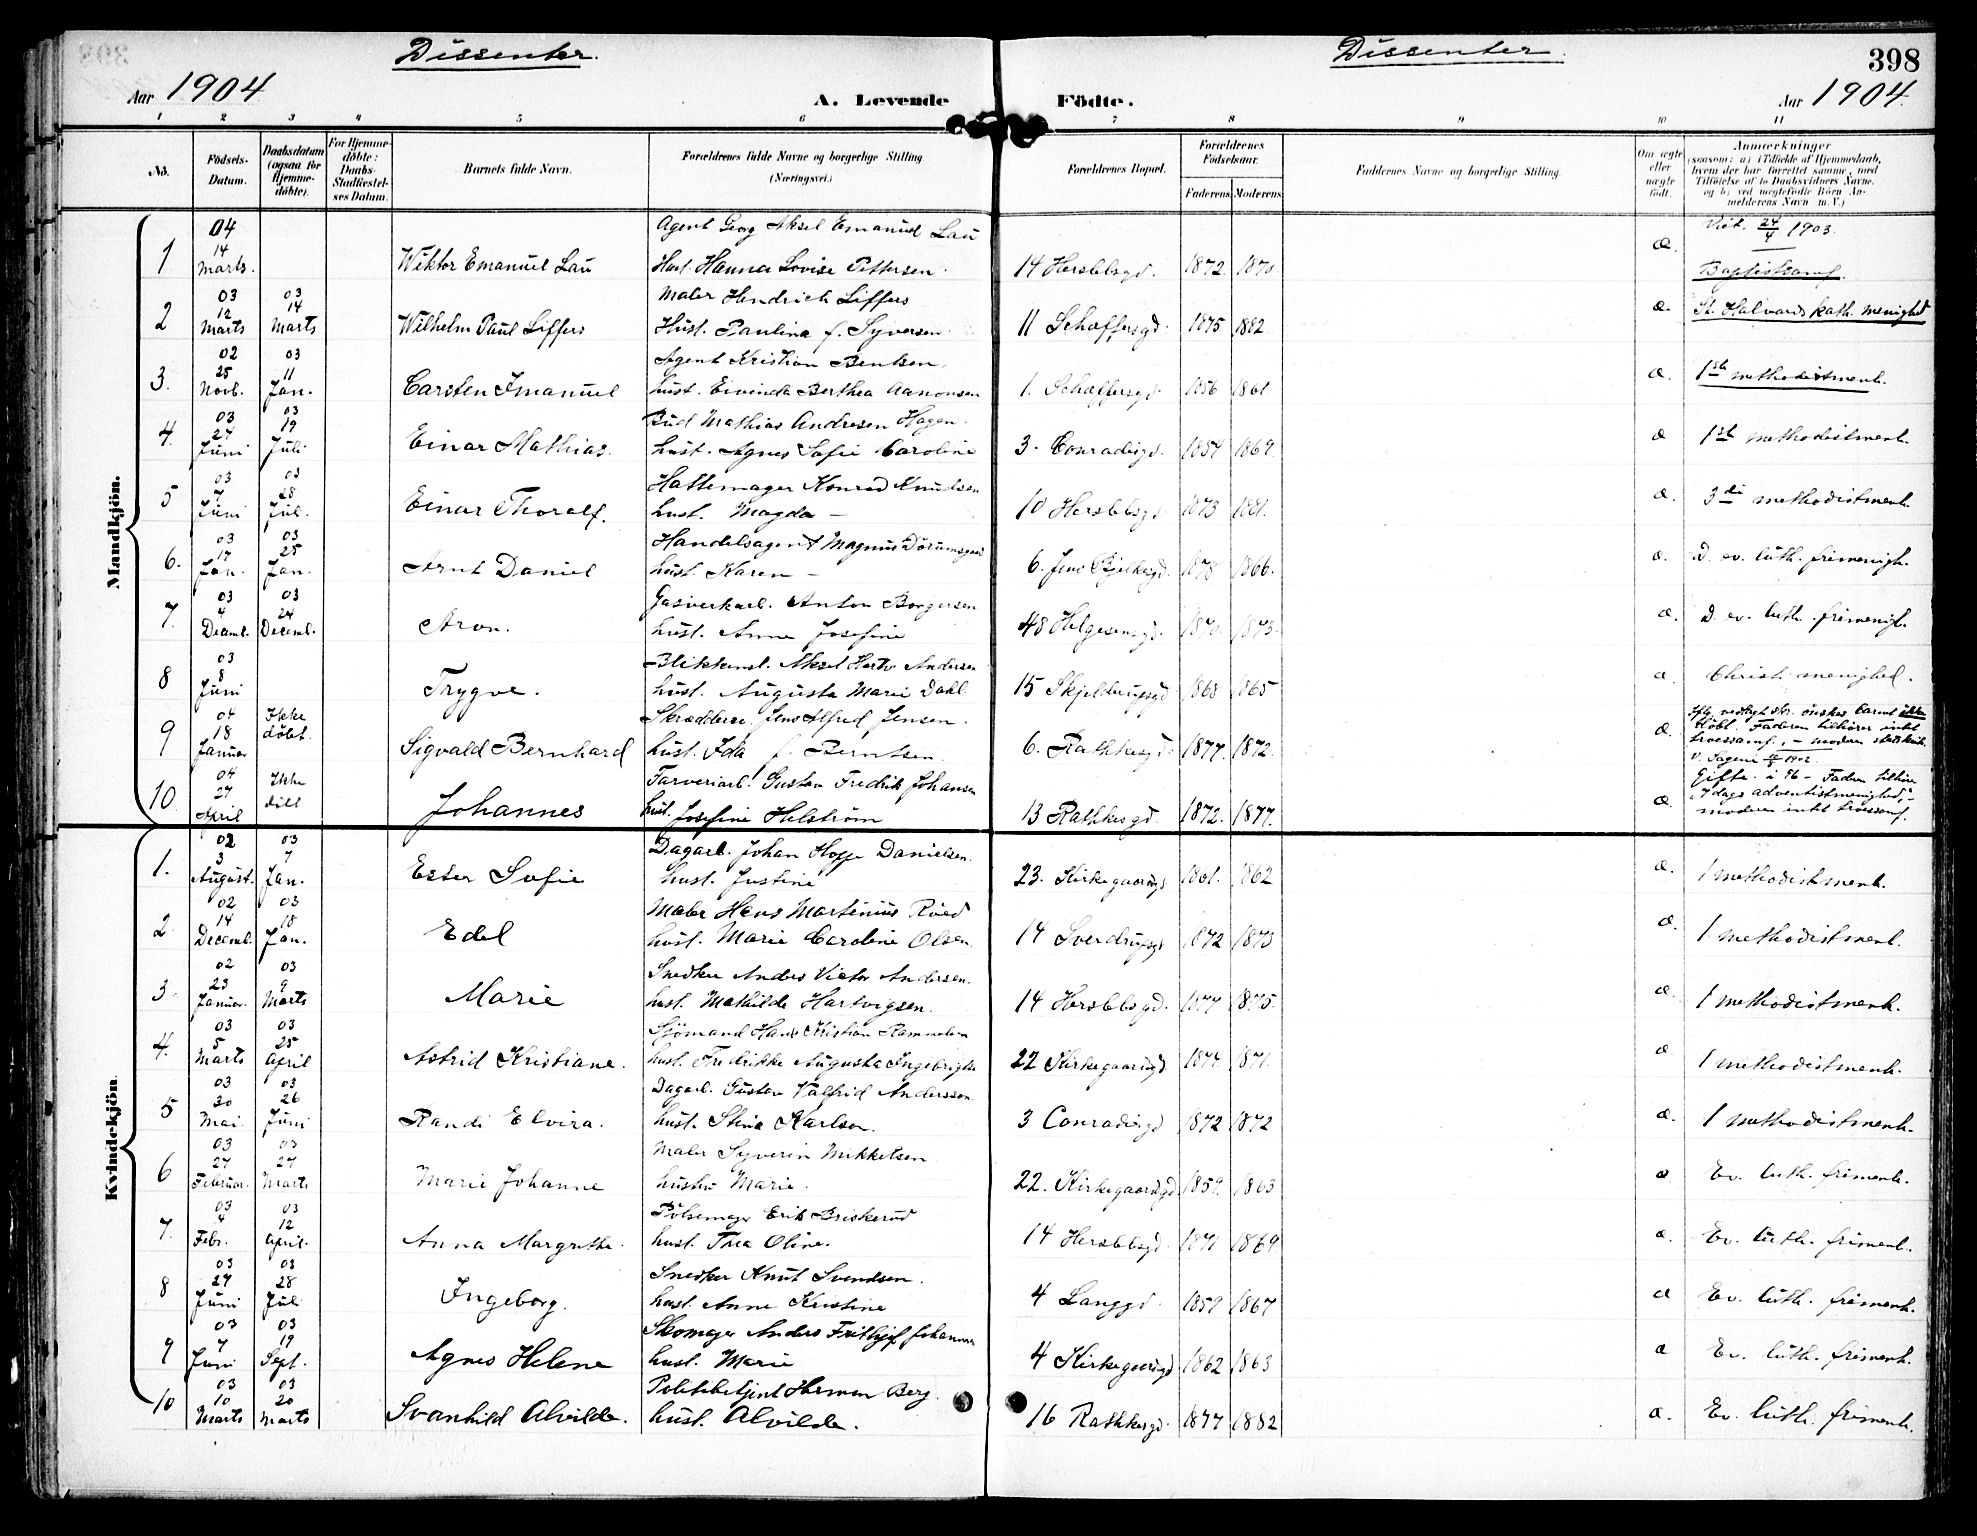 Dissenter.
Dissenter.
398
Aar 1904
A. Levende
Födte.
Aar 1904.
1 2 3 4 5 6 7 8 9 10 11
No.
Födsels-Datum.
Daabsdatum (ogsaa for Hjemme-döbte).
For Hjemme-döbte: Daabs-Stadfæstel-ses Datum.
Barnets fulde Navn.
Forældrenes fulde Navne og borgerlige Stilling (Næringsvei.)
Forældrenes Bopæl.
Forældrenes Födselsaar.
Faderens Moderens
Faddernes Navne og borgerlige Stilling.
Om ægte eller uægte födt.
Anmærkninger
(saasom: a) i Tilfælde af Hjemmedaab,
hvem der har forrettet samme, med
Tilföielse af to Daabsvidners Navne,
og b) ved uægtefödte Börn An-
melderens Navn m. V.)
Mandkjön.
04 Agent Georg Aksel Emanuel Lau Viet. 24/4 1903.
1 14 Marts. Wiktor Emanuel Lau Hust. Hanna Lovise Pettersen. 14 Herslebsgd. 1872. æ. Baptistsamf.
03 12 03 14 Maler Hendrich Siffers
2 Marts Marts Wilhelm Paul Siffers Hust. Paulina f. Syversen. 11 Schæffersgd. 1875 1882 æ. St. Halvards kath. menighed
02 25 03 11 Agent Kristian Bentsen,
3. Novb. Jan. Carsten Imanuel hust. Eivinda Berthea Aanonsen 1. Schæffersgd. 1856 1861 æ. 1ste methodistmenh.
03 24 03 19 Bud Mathias Andresen Hagen.
4. Juni Juli Einar Mathias. hust. Agnes Sofie Caroline 3. Conradisgd. 1854 1869. æ 1ste methodistmenh.
03 7 03 28 Hattemager Konrad Knudsen
5 Juni Jul. Einar Thoralf. hust. Magda — 10 Herslebsgd. 1873 1881. æ. 3die methodistmenh.
03 17 03 25 Handelsagent Magnus Dorumsgaard
6. Jan. Jan. Arnt Daniel hust. Karen — 6. Jens Bjelkesgd. 1878 1866. æ. D. ev. luth. frimenigh.
03 4 03 24 Gasverkarb. Anton Borgersen
7. Decemb. Decemb. Aron. hust. Anna Josefine 48 Helgesensgd. 1873. æ. D. ev. luth. frimenigh.
03 8 Blikkensl. Aksel Hartv. Andersen
8 Juni Trygve. hust. Augusta Marie Dahl 15 Skjelderupsgd 1868 1865 æ. Christi menighed.
04 18 Ikke döbt. Skrædder Jens Alfred Jensen.
9 Januar Sigvald Bernhard hust. Ida f. Berntsen. 6. Rathkesgd. 1877. 1872. æ. önskes barnet ikke döbt. Faderen tilhörer intet troessamf., — moderen statskirk. V. Sagene 1902.
04 27 Ikke döbt Farveriarb. Gustav Fredrik Johansen
10. April Johannes hust. Josefine Helström 13 Rathkesgd. 1872. 1877. æ. Gifte i 96 — Faderen tilhörer "7 dags adventistmenighed," — moderen intet troessamf.
Kvindekjön.
02 3 03 7 Dagarb. Johan Hoppe Danielsen.
1. August. Jan. Ester Sofie hust. Justine 23. Kirkegaardsgd 1861. 1862 æ. 1 methodistmenh.
02 14 03 18 Maler Hans Martinius Röed
2 Decemb. Jan. Edel hust. Marie Caroline Olsen. 14 Sverdrupsgd 1872 1873 æ. 1 methodistmenh.
02 23 03 9 Snedker Anders Victor Andersen.
3. Januar. Marts Marie hust. Mathilde Hartvigsen. 14 Herslebsgd. 1877 1875. æ. 1 methodistmenh.
03 5 03 25 Sjömand Hans Kristian
4. Marts April Astrid Kristiane. hust. Fredrikke Augusta Ingebrigts 22 Kirkegaardsgd 1874. 1871. æ 1 methodistmenh.
03 30 03 26 Dagarb. Gustav Valfrid Andersson.
5 Mai. Juni Randi Elvira. hust. Stina Karlson. 3 Conradisgd 1872 1872 æ. 1 methodistmenh.
03 27 03 27 Maler Syverin Mikkelsen
6 Februar. Marts Marie Johanne hustru Marie. 22. Kirkegaardsgd. 1859. 1863 æ Ev. luth. frimenh.
03 4 03 12 Pölsemager Erik Briskerud
7. Febr. April. Anna Margrethe. hust. Thea Oline. 14 Herslebsgd. 1871 1869 æ. Ev. luth. frimenh.
03 27 03 28 Snedker Knut Svendsen.
8 Juni Juli Ingeborg. hust. Anne Kristine 4 Langgd. 1859 1867 æ Ev. luth. frimenh.
03 7 03 19 Skomager Anders Frithjof Johannesen
9 Juni Sept. Agnes Helene hust. Marie 4 Kirkegaardsgd 1862 1863 æ Ev. luth. frimenh.
03 10 03 20 Politibetjent Herman Berg.
10 Marts Marts Svanhild Alvilde. hust. Alvilde. 16 Rathkesgd. 1877 1882 æ. Ev. luth. frimenh.